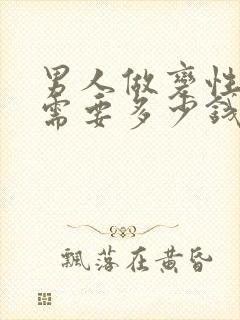 男人做变性
需要多少钱
飘落在黄昏